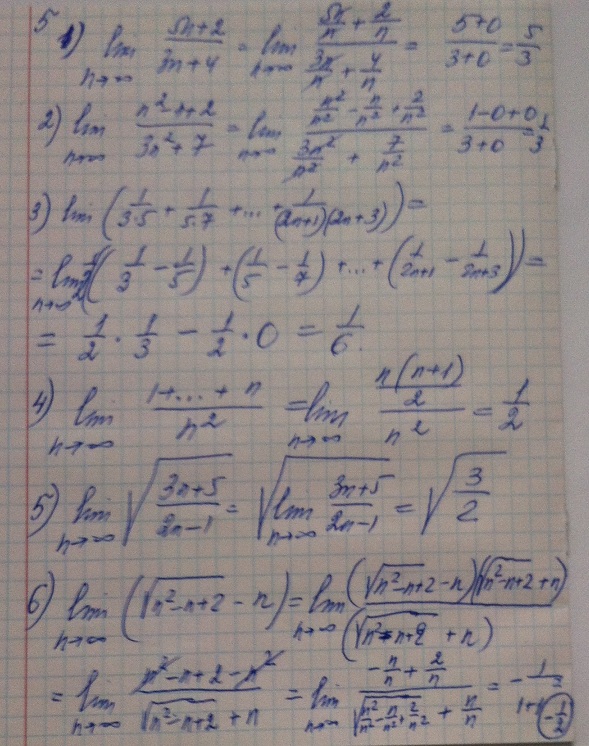 5
1) lim n→∞ (5n+2)/(3n+4) = lim n→∞ (5n/n + 2/n)/(3n/n + 4/n) = (5+0)/(3+0) = 5/3
2) lim n→∞ (n²-n+2)/(3n²+7) = lim n→∞ (n²/n² - n/n² + 2/n²)/(3n²/n² + 7/n²) = (1-0+0)/(3+0) = 1/3
3) lim (1/(3·5) + 1/(5·7) + ... + 1/((2n+1)(2n+3))) =
= lim n→∞ 1/2 ((1/3 - 1/5) + (1/5 - 1/7) + ... + (1/(2n+1) - 1/(2n+3))) =
= 1/2 · 1/3 - 1/2 · 0 = 1/6.
4) lim n→∞ (1+...+n)/n² = lim n→∞ (n(n+1)/2)/n² = 1/2
5) lim n→∞ √((3n+5)/(2n-1)) = √(lim n→∞ (3n+5)/(2n-1)) = √(3/2)
6) lim n→∞ (√(n²-n+2) - n) = lim n→∞ ((√(n²-n+2) - n)(√(n²-n+2) + n))/(√(n²-n+2) + n)
= lim n→∞ (n²-n+2-n²)/(√(n²-n+2) + n) = lim n→∞ (-n/n + 2/n)/(√(n²/n² - n/n² + 2/n²) + n/n) = -1/(1+1) = -1/2